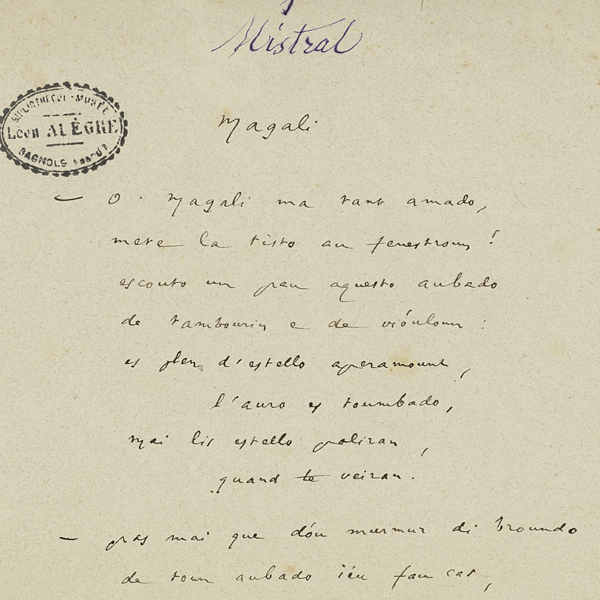 Mistral
BIBLIOTHÈQUE-MUSÉE
Léon ALÈGRE
BAGNOLS
Magali
— O. Magali ma tant amado,
mete la tisto au fenestroun !
escouto un pau aquesto aubado
de tambourin e de vióuloun :
es plen d'estello aperamount,
l'auro es toumbado,
mai lis estello paliran,
quand te veiran.
— pas mai que dóu murmur di broundo
de toun aubado iéu fau cas,